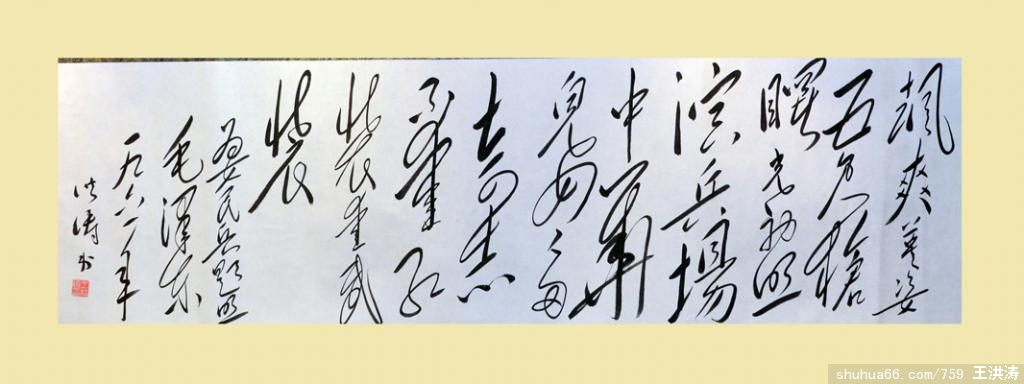 颯爽英姿
五尺槍
曙光初照
演兵場
中華
兒女多
奇志
不愛紅
裝愛武
裝
為女民兵題照
毛澤東
一九六一年
洪濤书
shuhua66.com/759 王洪涛